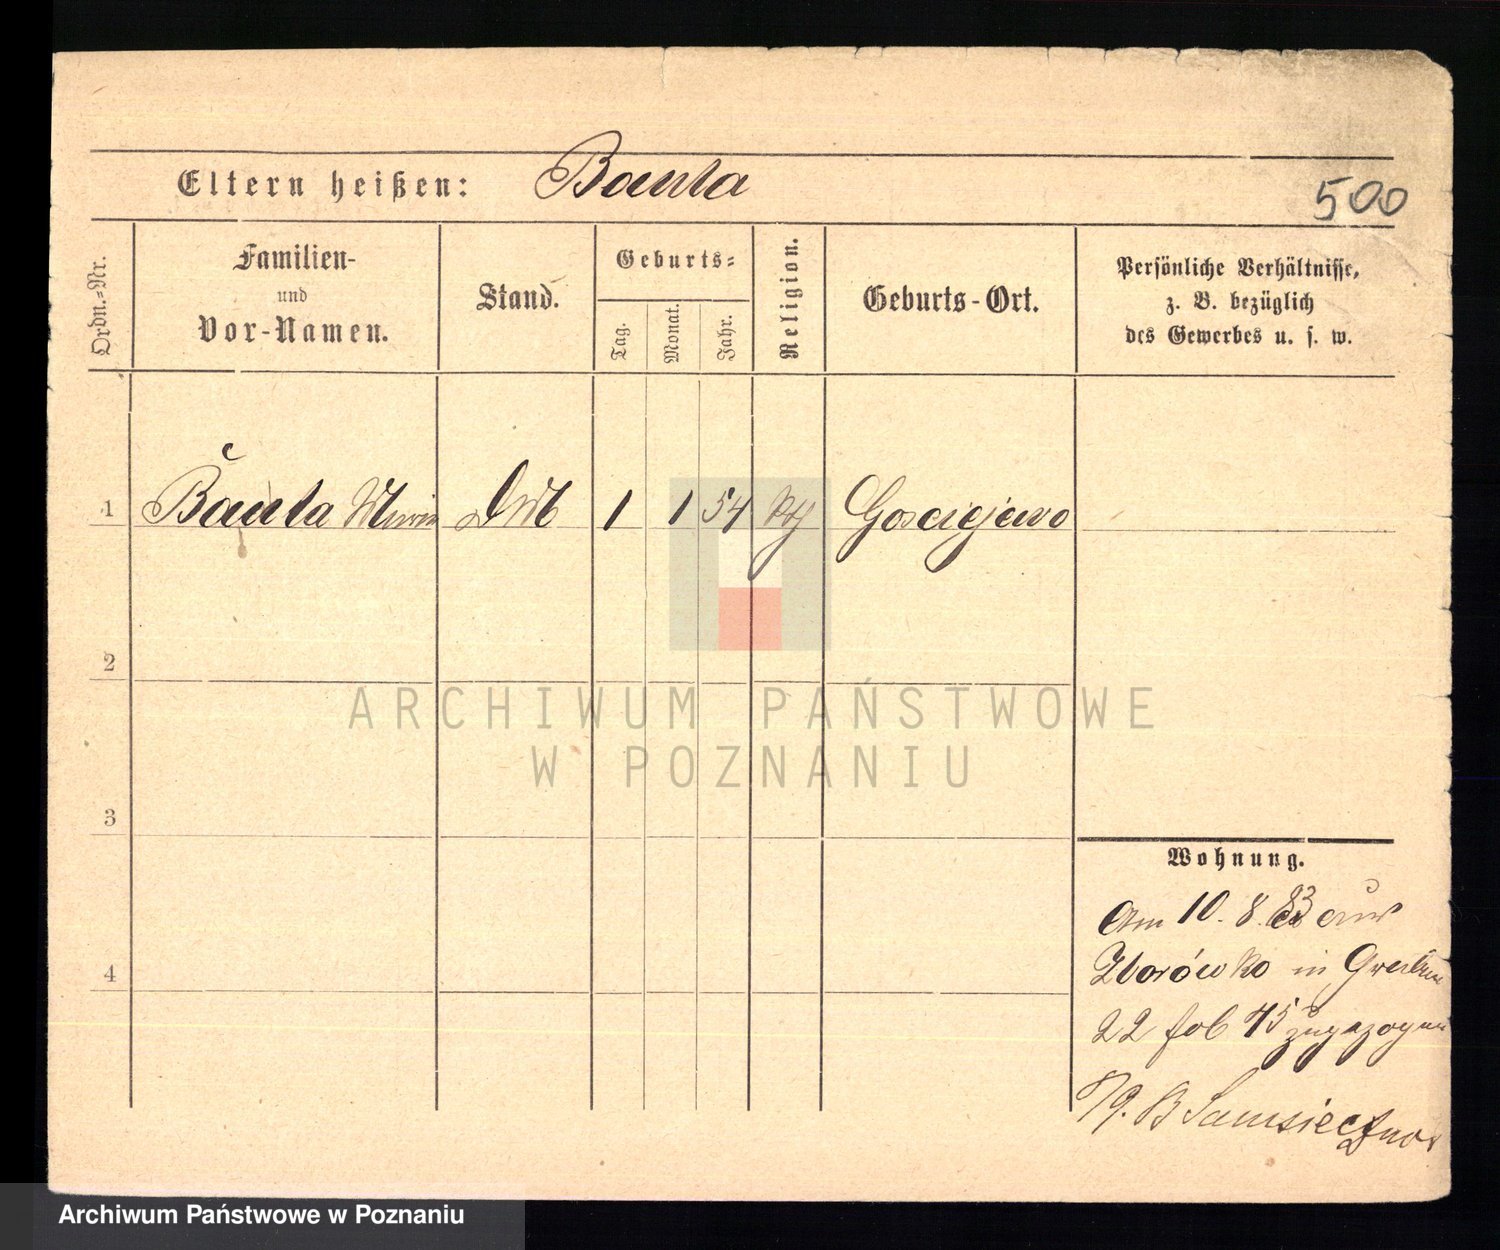 Eltern heißen: Bauta
500
Ordn.-Nr.
Familien-
und
Vor-Namen.
Stand.
Geburts-
Tag.
Monat.
Jahr.
Religion.
Geburts-Ort.
Persönliche Verhältnisse,
z. B. bezüglich
des Gewerbes u. s. w.
1 Bauta 1 1 54 Gosciejewo
2
3
4
Wohnung.
Am 10. 8. 83 aus
Zborówko in
22 fol 75 zugezogen
79. B
ARCHIWUM PAŃSTWOWE
W POZNANIU
Archiwum Państwowe w Poznaniu